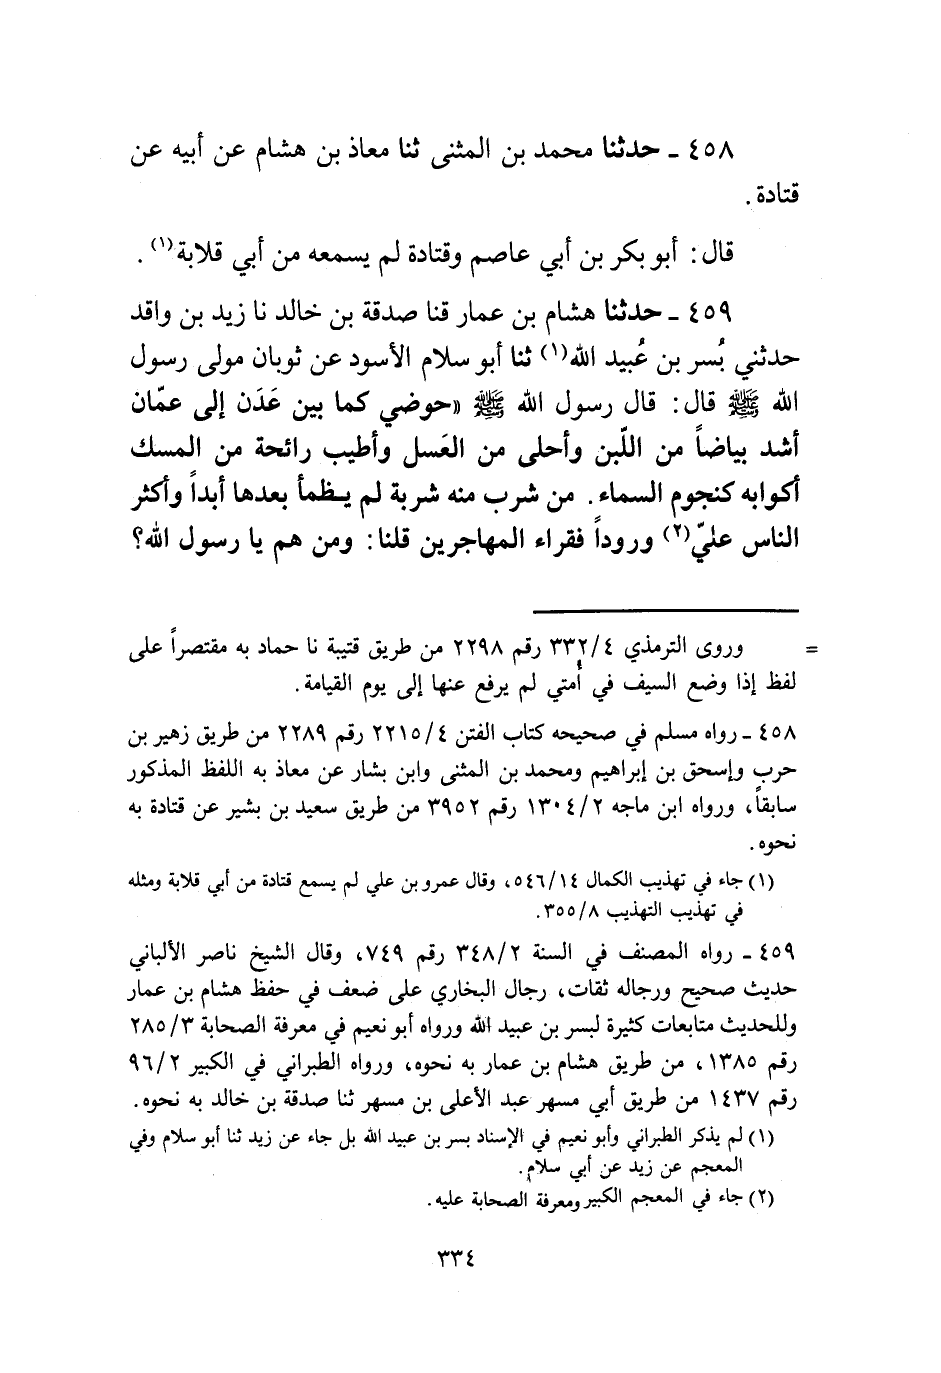 ٤٥٨ ـ حدثنا محمد بن المثنى ثنا معاذ بن هشام عن أبيه عن
قتادة .
قال : أبو بكر بن أبي عاصم وقتادة لم يسمعه من أبي قلابة(١) .
٤٥٩ ـ حدثنا هشام بن عمار قنا صدقة بن خالد نا زيد بن واقد
حدثني بُسر بن عُبيد الله(١) ثنا أبو سلام الأسود عن ثوبان مولى رسول
الله ﷺ قال : قال رسول الله ﷺ «حوضي كما بين عَدَن إلى عمّان
أشد بياضاً من اللّبن وأحلى من العَسل وأطيب رائحة من المسك
أكوابه كنجوم السماء . من شرب منه شربة لم يظمأ بعدها أبداً وأكثر
الناس عليّ(٢) وروداً فقراء المهاجرين قلنا : ومن هم يا رسول الله؟
= وروى الترمذي ٣٣٢/٤ رقم ٢٢٩٨ من طريق قتيبة نا حماد به مقتصراً على
لفظ إذا وضع السيف في أمتي لم يرفع عنها إلى يوم القيامة .
٤٥٨ ـ رواه مسلم في صحيحه كتاب الفتن ٢٢١٥/٤ رقم ٢٢٨٩ من طريق زهير بن
حرب وإسحق بن إبراهيم ومحمد بن المثنى وابن بشار عن معاذ به اللفظ المذكور
سابقاً، ورواه ابن ماجه ١٣٠٤/٢ رقم ٣٩٥٢ من طريق سعيد بن بشير عن قتادة به
نحوه .
(١) جاء في تهذيب الكمال ٥٤٦/١٤، وقال عمرو بن علي لم يسمع قتادة من أبي قلابة ومثله
في تهذيب التهذيب ٣٥٥/٨ .
٤٥٩ ـ رواه المصنف في السنة ٣٤٨/٢ رقم ٧٤٩، وقال الشيخ ناصر الألباني
حديث صحيح ورجاله ثقات، رجال البخاري على ضعف في حفظ هشام بن عمار
وللحديث متابعات كثيرة لبسر بن عبيد الله ورواه أبو نعيم في معرفة الصحابة ٢٨٥/٣
رقم ١٣٨٥، من طريق هشام بن عمار به نحوه، ورواه الطبراني في الكبير ٩٦/٢
رقم ١٤٣٧ من طريق أبي مسهر عبد الأعلى بن مسهر ثنا صدقة بن خالد به نحوه .
(١) لم يذكر الطبراني وأبو نعيم في الإسناد بسر بن عبيد الله بل جاء عن زيد ثنا أبو سلام وفي
المعجم عن زيد عن أبي سلام .
(٢) جاء في المعجم الكبير ومعرفة الصحابة عليه .
٣٣٤